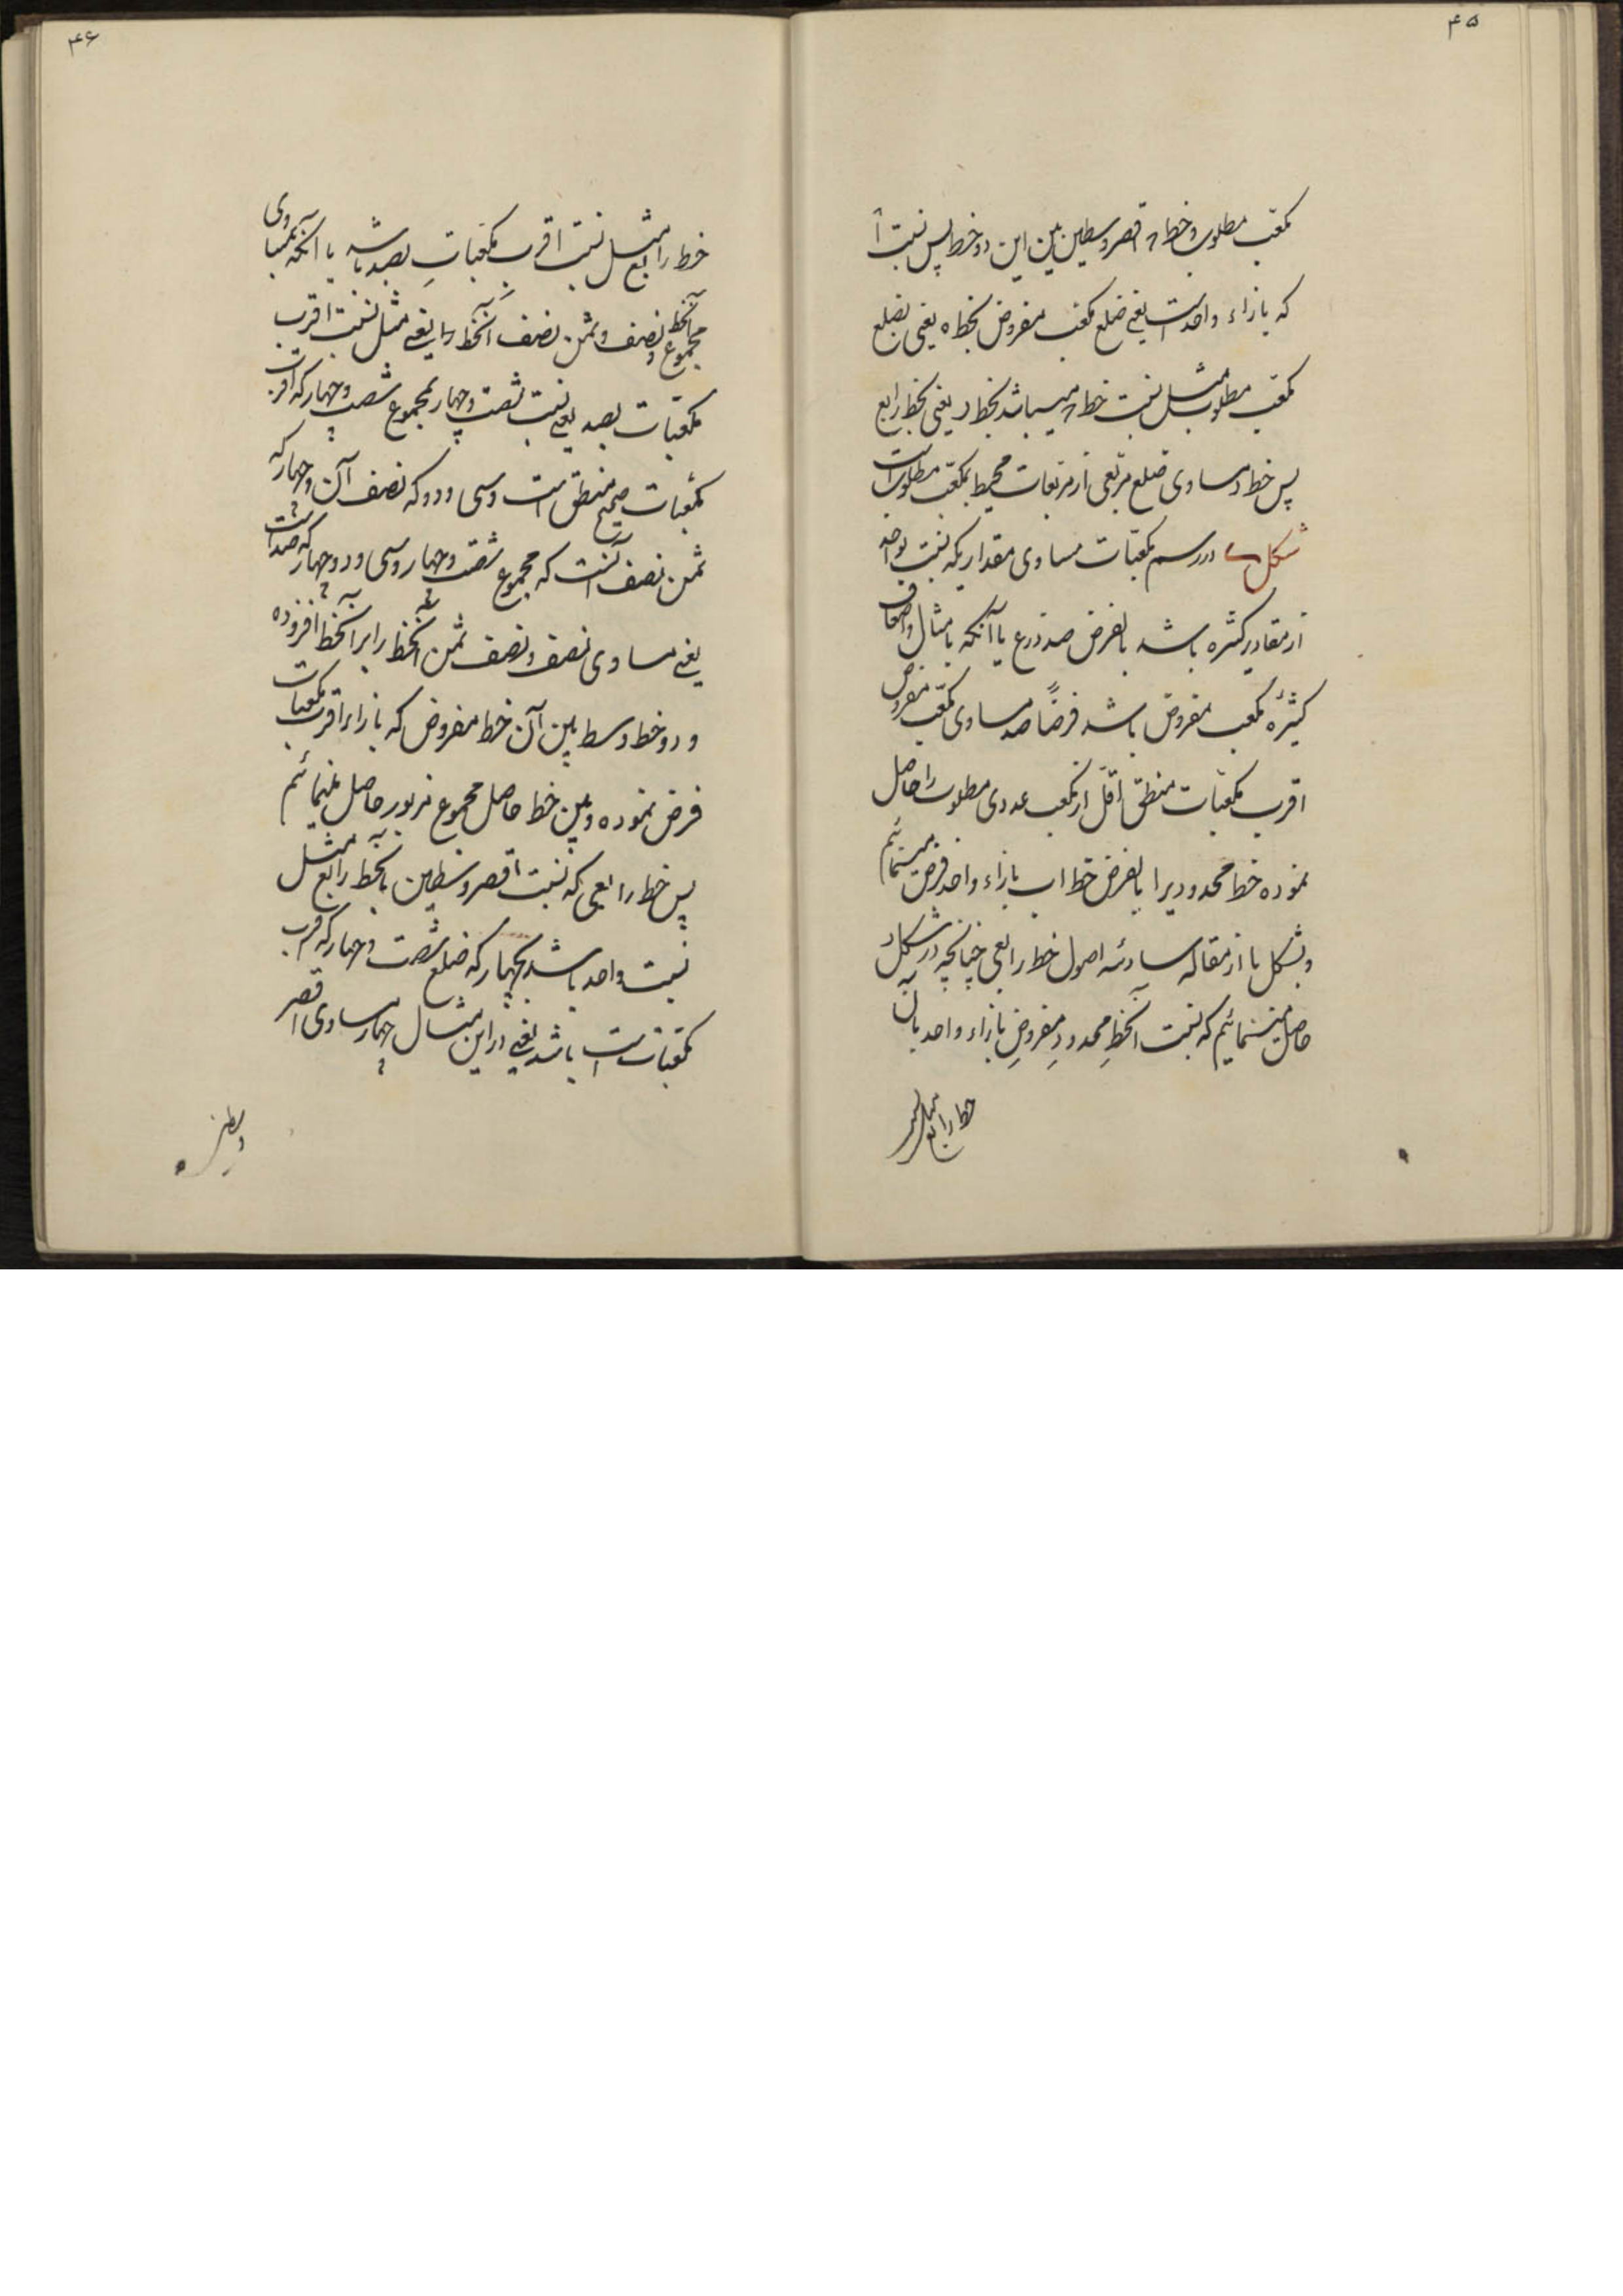 ۴۵
مکعب مطلوب و خط ر اقصر وسطین بین این دو خط پس نسبت آ
که بازاء واحد است یعنی ضلع مکعب مفروض بخط ه یعنی بضلع
مکعب مطلوب مثل نسبت خط ر میباشد بخط د یعنی بخط رابع
پس خط د مساوی ضلع مربعی از مربعات محیط بمکعب مطلوب است
شکل در رسم مکعبات مساوی مقداریکه نسبت بواحد
از مقادیر کثره باشد بالفرض صد ذرع یا آنکه بامثال و اضعاف
کثیرهٔ مکعب مفروض باشد فرضاً صد مساوی مکعب مفروض
اقرب مکعبات منطق اقل از مکعب عددی مطلوب را حاصل
نموده خط محدودیرا بالفرض خط اب بازاء واحد فرض مینمائیم
و بشکل یا از مقاله سادسه اصول خط رابعی چنانچه در شکل
حاصل مینمائیم که نسبت آنخط محدود مفروض بازاء واحد بآن
خط رابع مثل
۴۶
خط رابع مثل نسبت اقرب مکعبات بصد باشد یا آنکه بمساوی
مجموع آنخط و نصف و ثمن نصف آنخط را یعنی مثل نسبت اقرب
مکعبات بصد یعنی نسبت شصت و چهار بمجموع شصت و چهار که اقرب
مکعبات صحیح منطق است و سی و دو که نصف آن و چهار که
ثمن نصف آنست که مجموع شصت و چهار و سی و دو و چهار که صد است
یعنی مساوی نصف و نصف ثمن آنخط را بر آنخط افزوده
و دو خط وسط بین آن خط مفروض که بازاء اقرب مکعبات
فرض نموده و بین خط حاصل مجموع مزبور حاصل مینمائیم
پس خط رابعی که نسبت اقصر وسطین بآنخط رابع مثل
نسبت واحد باشد بچهار که ضلع شصت و چهار که اقرب
مکعبات است باشد یعنی در این مثال چهار مساوی اقصر
وسطین